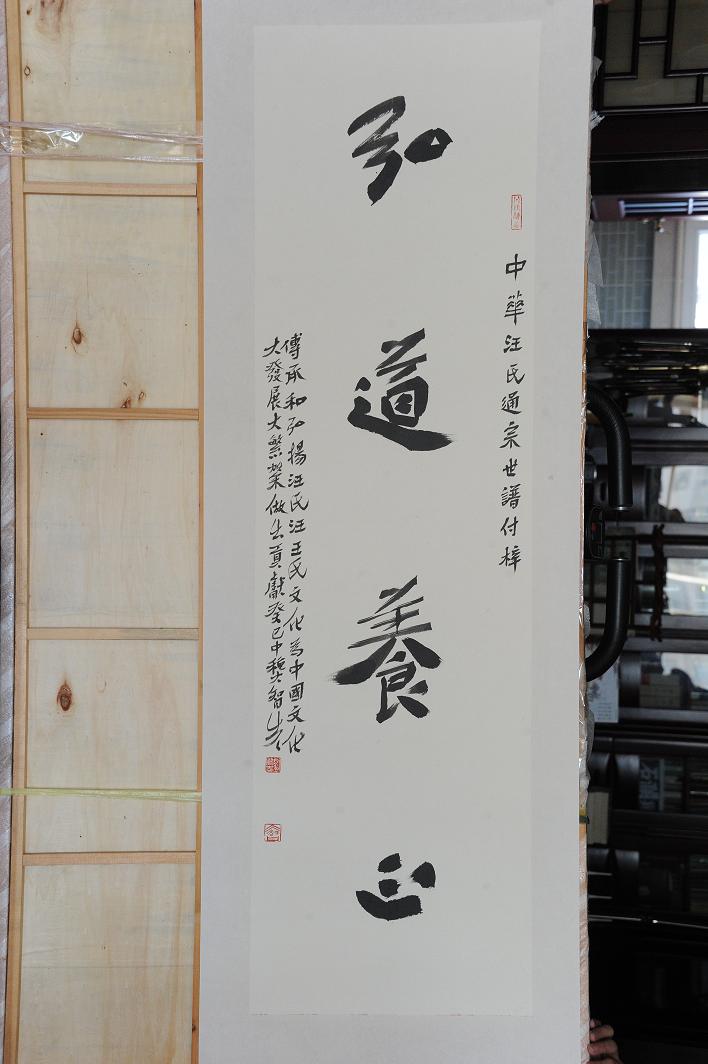 中華汪氏通宗世譜付梓
弘道養正
傳承和弘揚汪氏汪王氏文化為中國文化
大發展大繁榮做出貢獻癸巳中穐樊智生